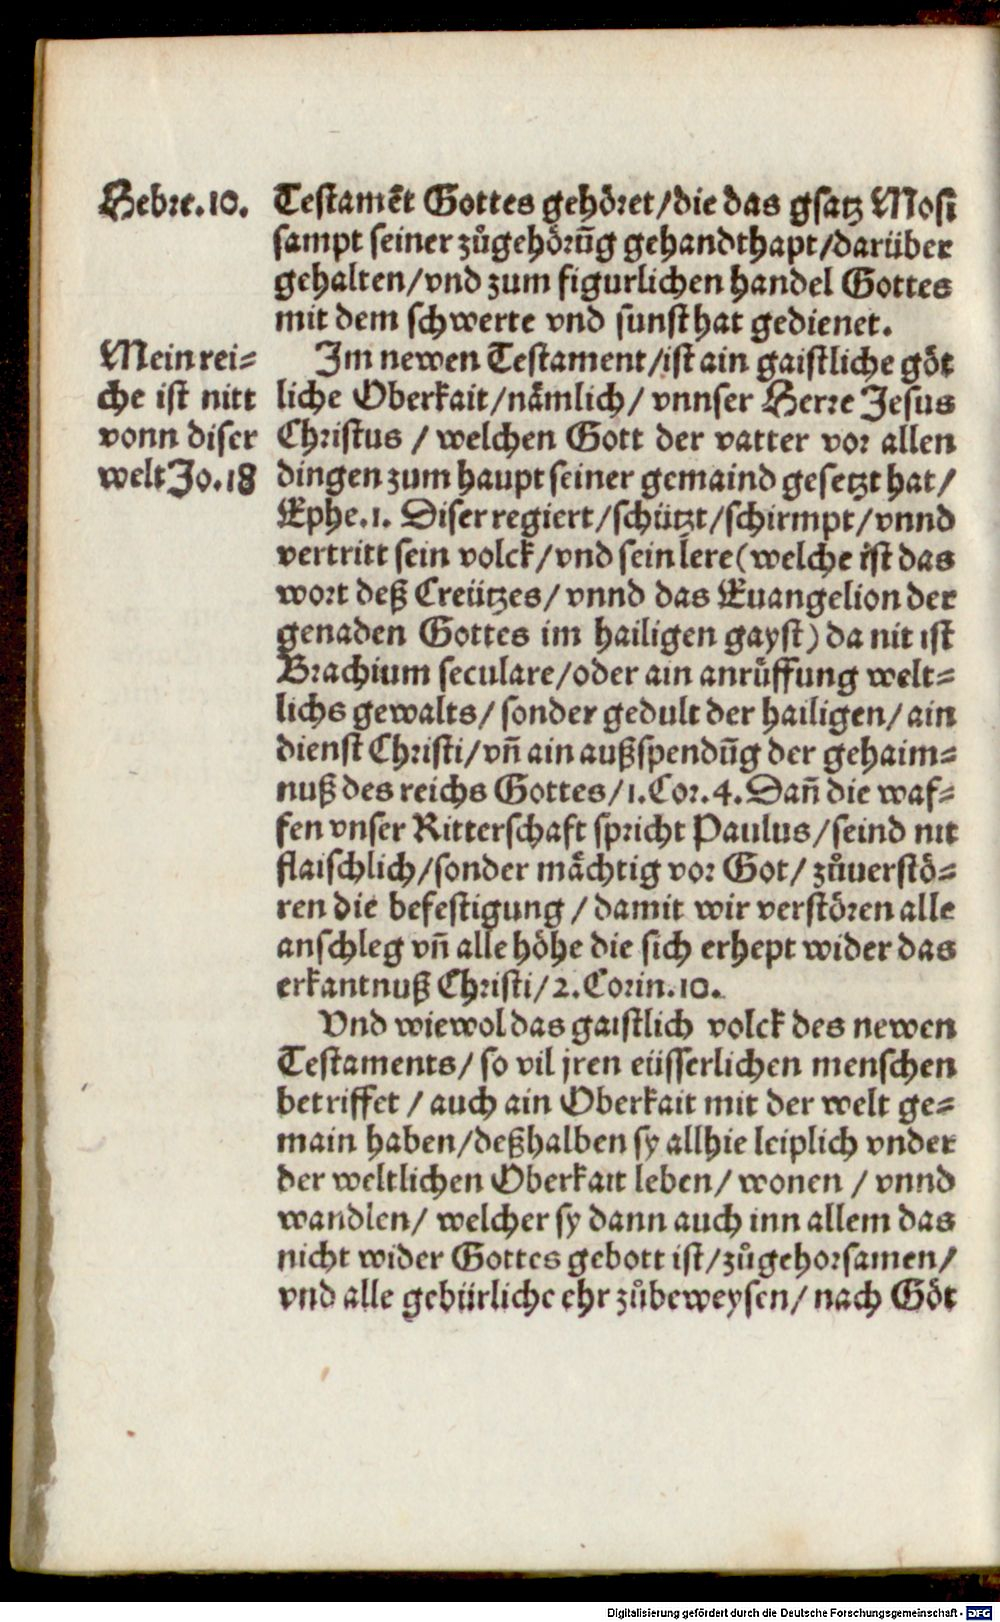 Hebre.10.
Testamēt Gottes gehöret/die das gsatz Mosi
sampt seiner zůgehörūg gehandthapt/darüber
gehalten/vnd zum figurlichen handel Gottes
mit dem schwerte vnd sunst hat gedienet.
Mein rei=
che ist nitt
vonn diser
welt Jo.18
Im newen Testament/ist ain gaistliche göt
liche Oberkait/nämlich/ vnnser Herre Jesus
Christus / welchen Gott der vatter vor allen
dingen zum haupt seiner gemaind gesetzt hat/
Ephe.1. Diser regiert/schützt/schirmpt/vnnd
vertritt sein volck/vnd sein lere (welche ist das
wort deß Creützes/ vnnd das Euangelion der
genaden Gottes im hailigen gayst) da nit ist
Brachium seculare/oder ain anrůffung welt=
lichs gewalts/ sonder gedult der hailigen/ ain
dienst Christi/vñ ain außspendūg der gehaim=
nuß des reichs Gottes/1.Cor.4. Dañ die waf=
fen vnser Ritterschaft spricht Paulus/seind nit
flaischlich/sonder mächtig vor Got/ zůuerstö=
ren die befestigung / damit wir verstören alle
anschleg vñ alle höhe die sich erhept wider das
erkantnuß Christi/2.Corin.10.
Vnd wiewol das gaistlich volck des newen
Testaments/ so vil jren eüsserlichen menschen
betriffet / auch ain Oberkait mit der welt ge=
main haben/deßhalben sy allhie leiplich vnder
der weltlichen Oberkait leben/ wonen / vnnd
wandlen/ welcher sy dann auch inn allem das
nicht wider Gottes gebott ist/zůgehorsamen/
vnd alle gebürliche ehr zůbeweysen/ nach Göt
Digitalisierung gefördert durch die Deutsche Forschungsgemeinschaft - DFG